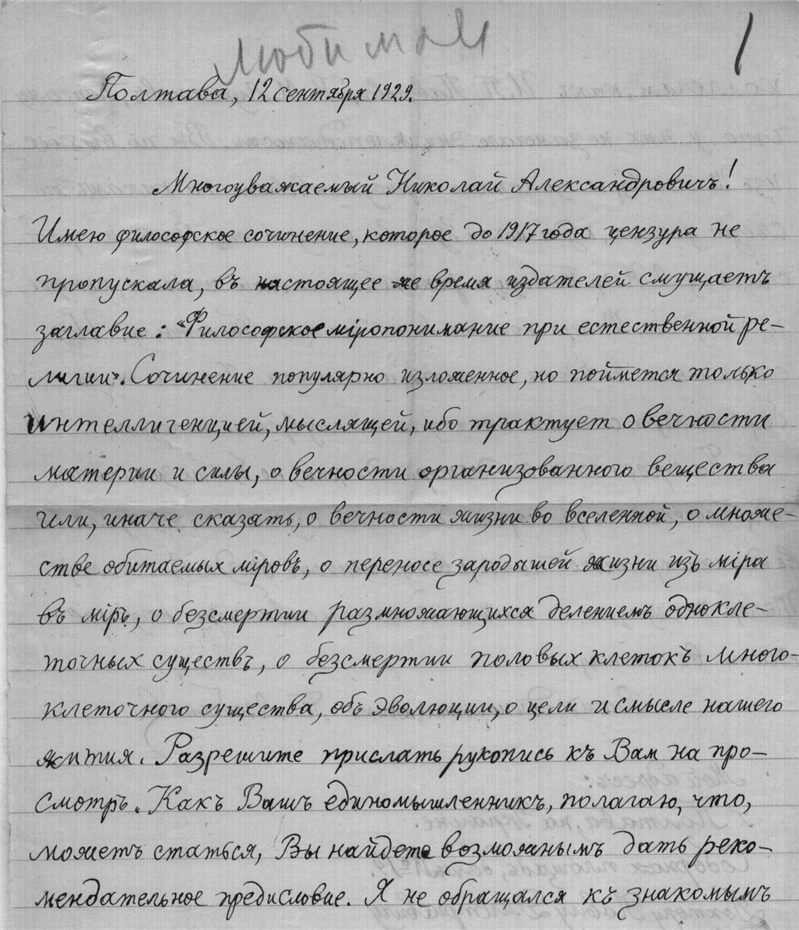 любимой
1
Полтава, 12 сентября 1929.
Многоуважаемый Николай Александровичъ!
Имею философское сочинение, которое до 1917 года цензура не
пропускала, въ настоящее же время издателей смущаетъ
заглавие: "Философское мiропонимание при естественной ре-
лигии". Сочинение популярно изложенное, но поймется только
интеллигенцией, мыслящей, ибо трактует о вечности
материи и силы, о вечности организованного вещества
или, иначе сказать, о вечности жизни во вселенной, о множе-
стве обитаемых мiровъ, о переносе зародышей жизни изъ мiра
въ мiръ, о безсмертии размножающихся делениемъ однокле-
точных существъ, о безсмертии половых клетокъ много-
клеточного существа, объ эволюции, о цели и смысле нашего
жития. Разрешите прислать рукопись къ Вам на про-
смотръ. Какъ Вашъ единомышленникъ, полагаю, что,
можетъ статься, Вы найдете возможнымъ дать реко-
мендательное предисловие. Я не обращался къ знакомымъ